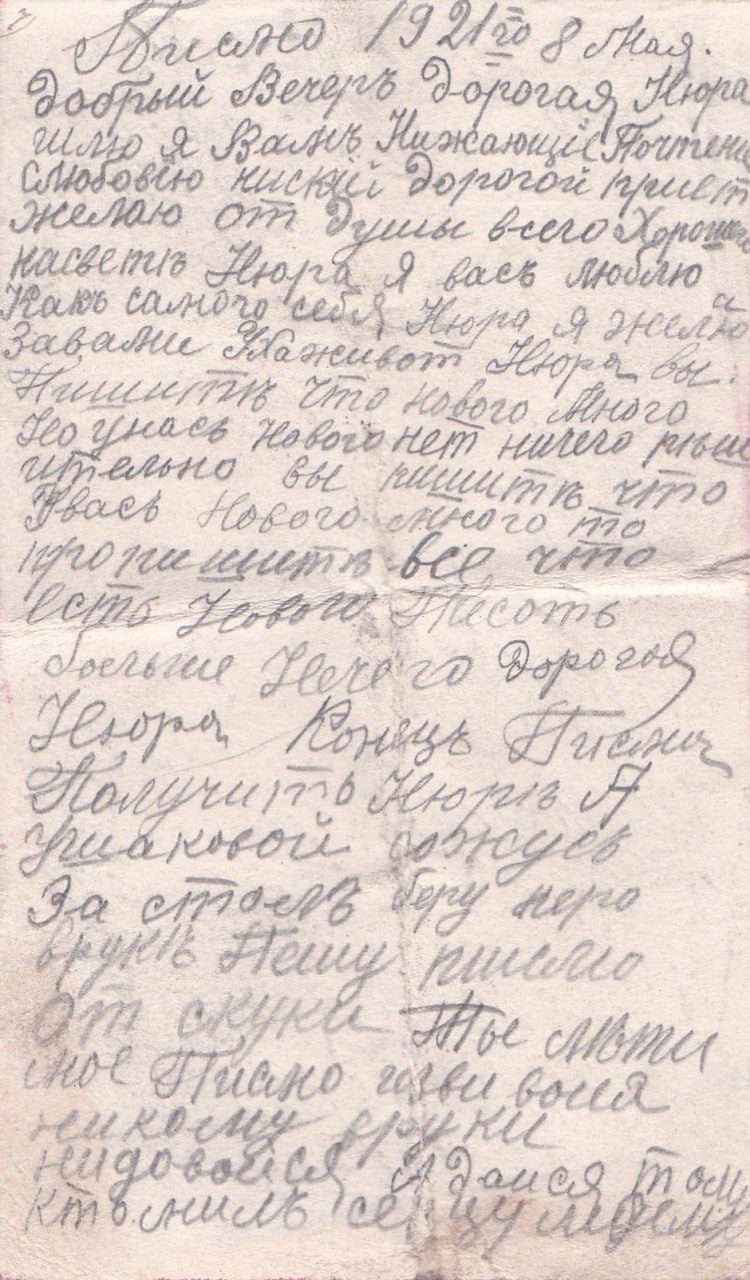 Писмо 1921 го 8 Мая.
Добрый Вечеръ Дорогая Нюра
шлю я Вамъ Нижающіе Почтени
слюбовію ниский дорогой привет
желаю от души всего Хорошег
насветѣ Нюра я васъ люблю
Какъ самого себя Нюра я желаю
Завами Ухаживот Нюра вы
Пишитѣ что нового Много
Но унасъ Нового нет ничего рѣш
ительно вы пишитѣ что
Увасъ Нового много то
пропишитѣ все что
есть Нового Песоть
больше Нечего Дорогая
Нюра Конецъ Писма
Получить Нюрѣ А
Ушаковой сожусь
За столъ беру перо
врукѣ Пешу писмо
От скуки Ты лѣти
мое Писмо извивоися
никому вруки
нидовойся А даися тому
кто милъ серцу моему